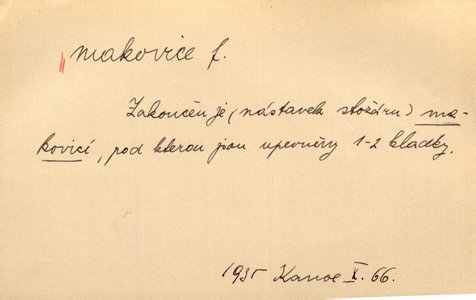 makovice f.
Zakončen je (nástavek stožáru) ma-
kovicí, pod kterou jsou upevněny 1-2 kladky.
1935 Kanoe X. 66.